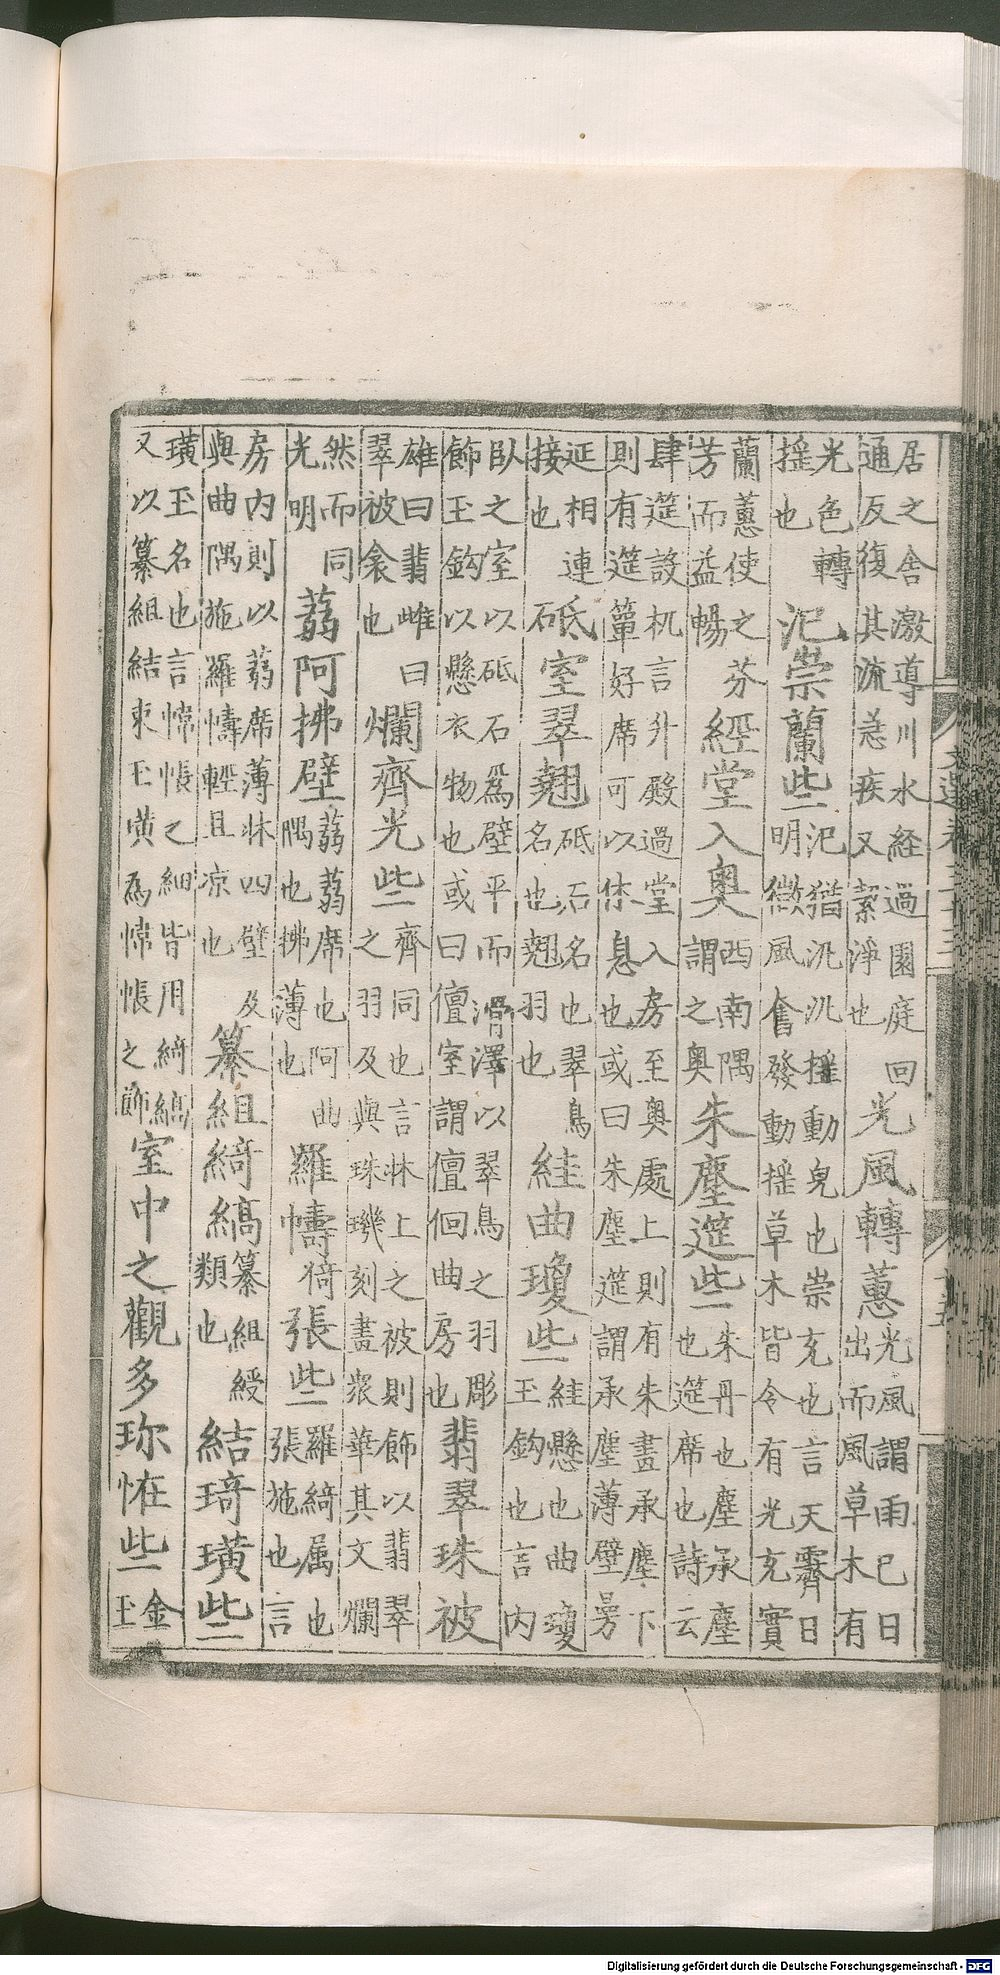 居之舍激導川水経過園庭回
通反復其流急疾又絜淨也
光風轉蕙
光風謂雨已日
出而風草木有
光色轉
揺也
氾崇蘭些
氾猶汎汎揺動皃也崇充也言天霽日
明微風奮發動揺草木皆令有光充實
蘭蕙使之芬
芳而益暢
經堂入奧
西南隅
謂之奧
朱塵筵些
朱丹也塵承塵
也筵席也詩云
肆筵設机言升殿過堂入房至奧處上則有朱畫承塵下
則有筵簟好席可以休息也或曰朱塵筵謂承塵薄壁曼
延相連
接也
砥室翠翹
砥石名也翠鳥
名也翹羽也
絓曲瓊些
絓懸也曲瓊
玉鈎也言内
臥之室以砥石爲壁平而滑澤以翠鳥之羽彫
飾玉鈎以懸衣物也或曰儃室謂儃佪曲房也
翡翠珠被
雄曰翡雌曰
翠被衾也
爛齊光些
齊同也言牀上之被則飾以翡翠
之羽及與珠璣刻畫衆華其文爛
然而同
光明
蒻阿拂壁
蒻蒻席也阿曲
隅也拂薄也
羅幬張些
羅綺属也
張施也言
房内則以蒻席薄牀四壁及
與曲隅施羅幬輕且凉也
纂組綺縞
纂組綬
類也
結琦璜些
璜玉名也言幃帳之細皆用綺縞
又以纂組結束玉璜爲幃帳之飾
室中之觀多珎恠些
金
玉
Digitalisierung gefördert durch die Deutsche Forschungsgemeinschaft - DFG